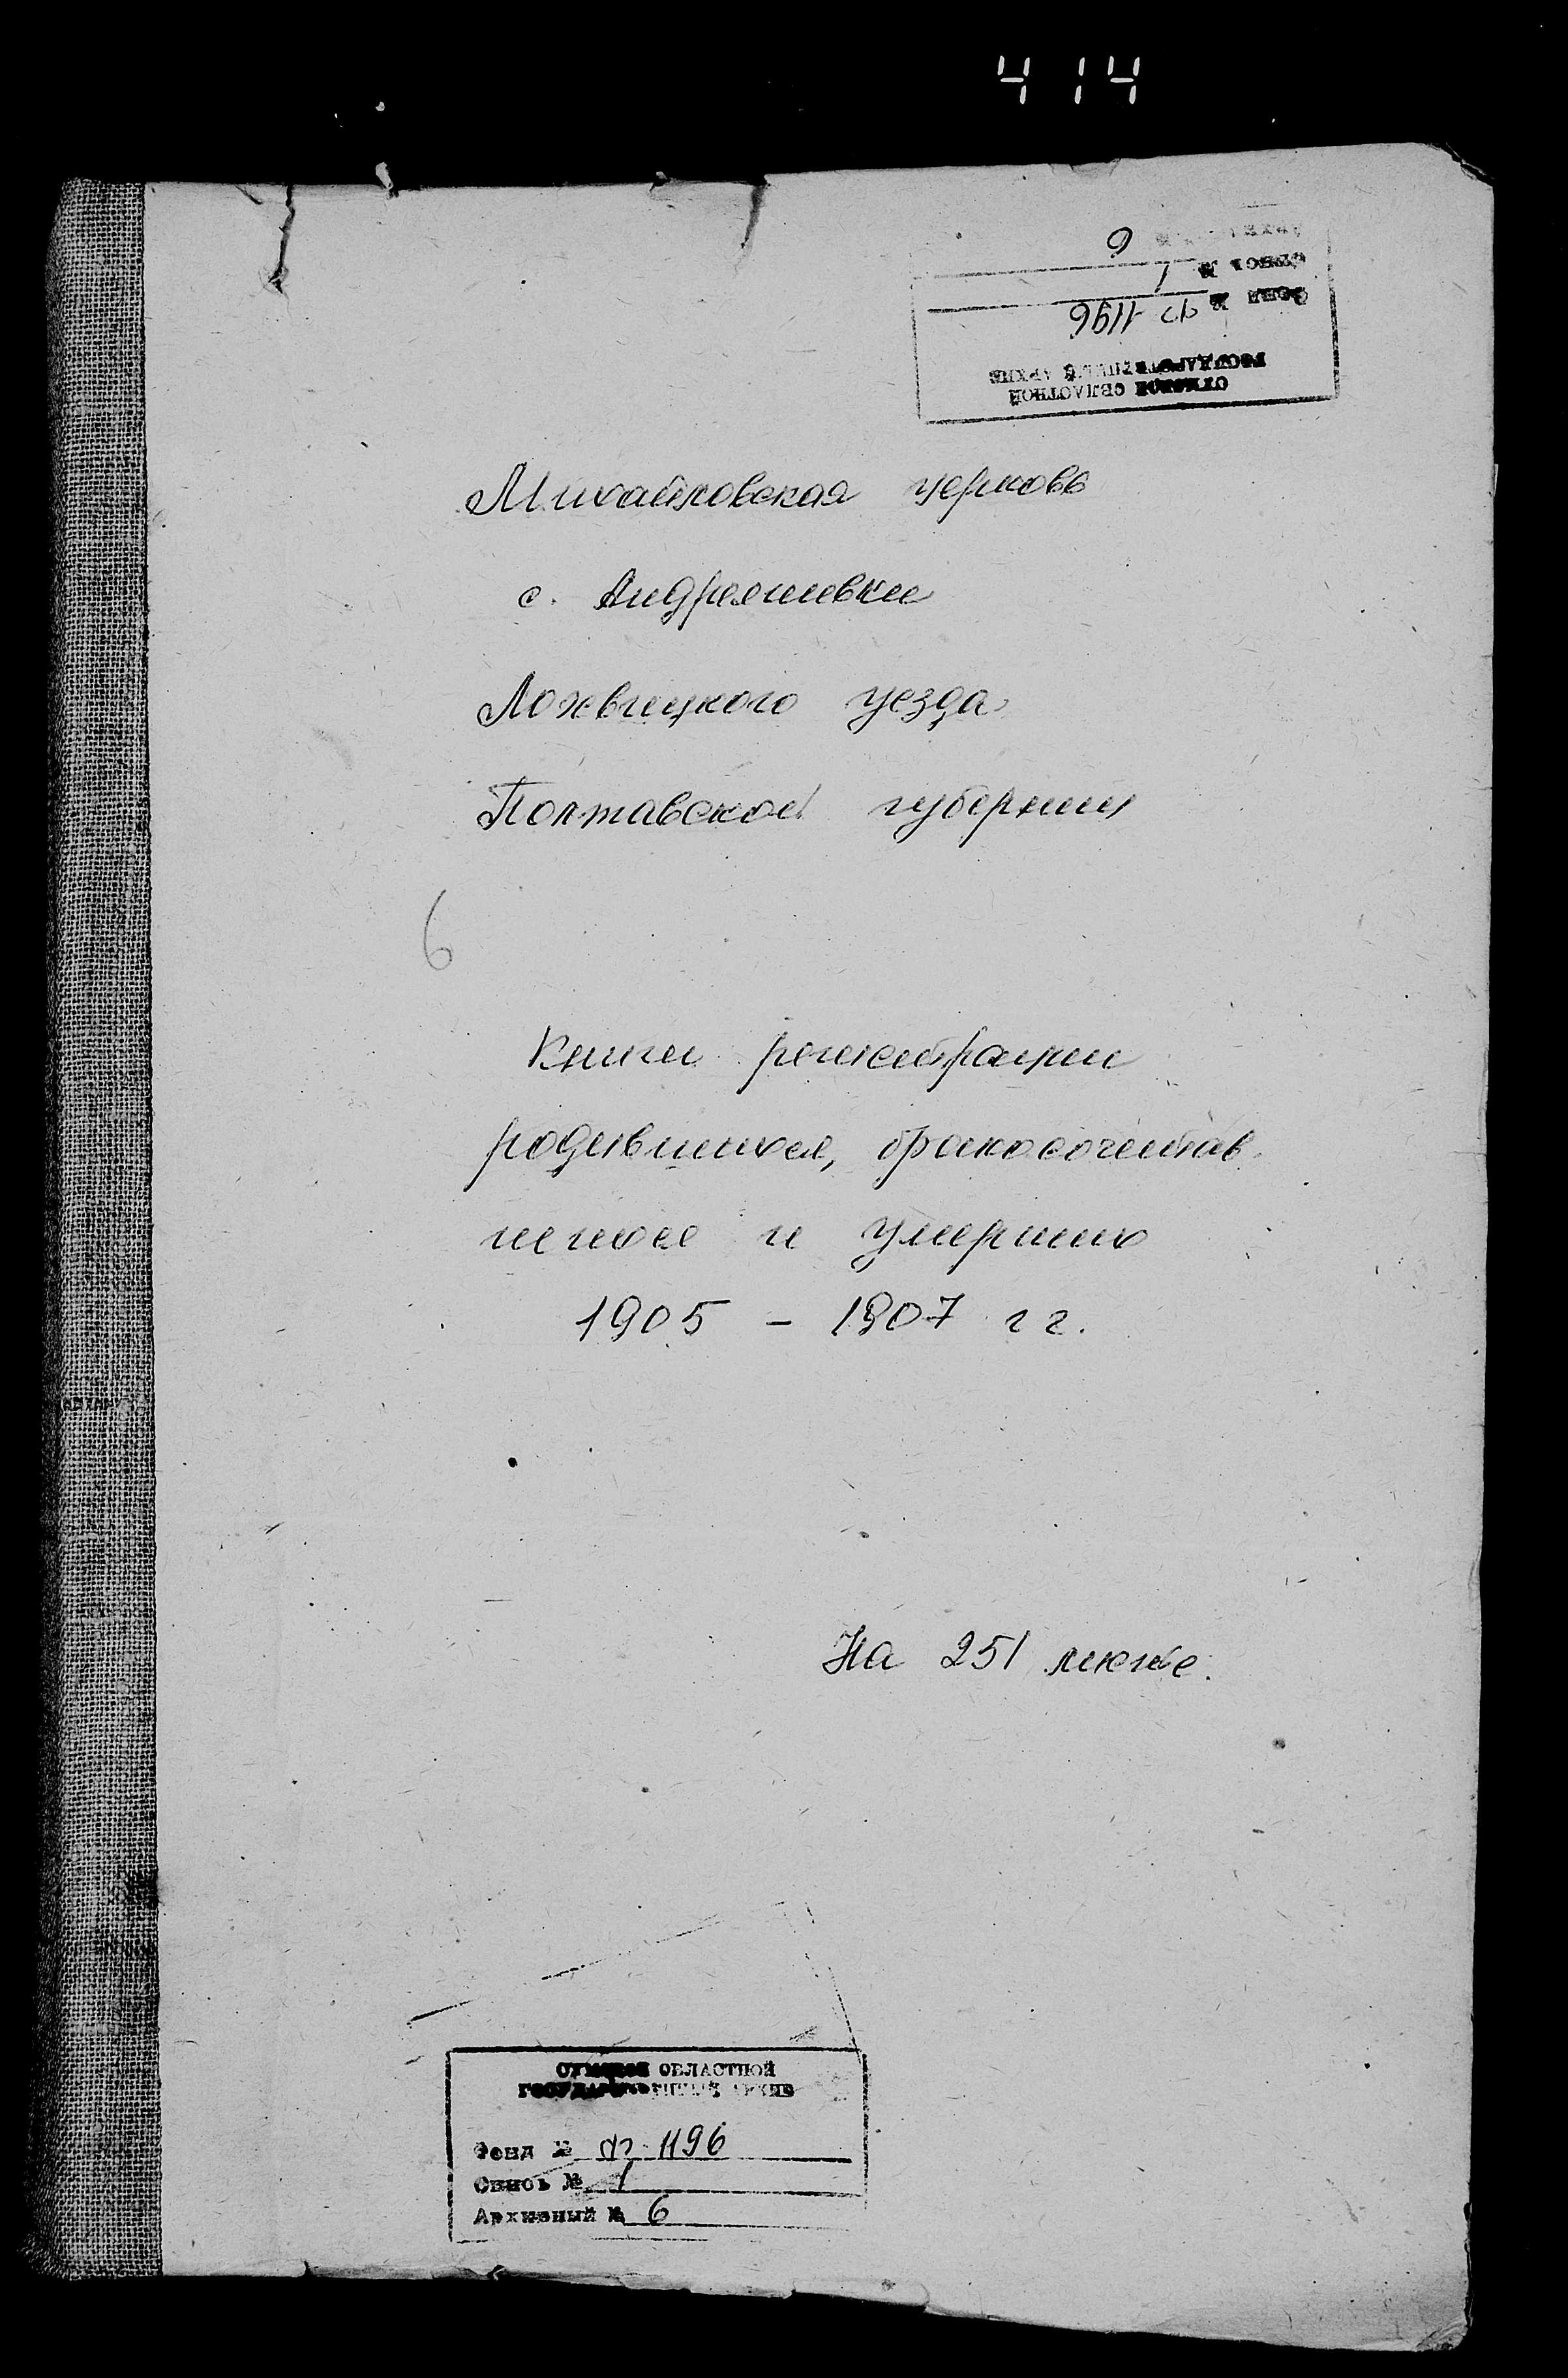 414
Архивный № 6
Опись № 1
Фонд № ф 1196
СУМСКОЙ ОБЛАСТНОЙ
ГОСУДАРСТВЕННЫЙ АРХИВ
Михайловская церковь
с. Андреяшевки
Лохвицкого уезда
Полтавской губернии
6
Книги регистрации
родившихся, бракосочетав
шихся и умерших
1905 - 1907 гг.
На 251 листе.
СУМСКОЙ ОБЛАСТНОЙ
ГОСУДАРСТВЕННЫЙ АРХИВ
Фонд № ф 1196
Опись № 1
Архивный № 6